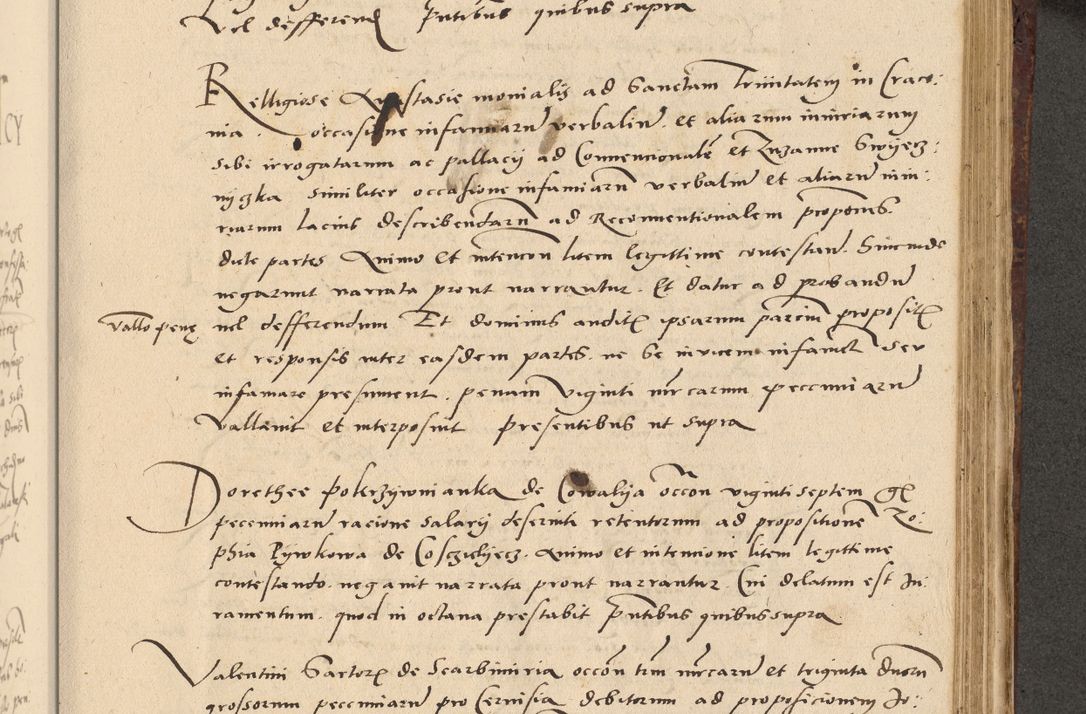 Vel defferend Pntibus quibus supra
Relligiose Anastasie monialis ad Sanctam Trinitatem in Craco:
nia. occasione infamiarum verbalium. et aliarum iniuriarum
sibi irrogatarum ac pallacij ad Conuencionale et Zuzanne Swyecz:
nyczka similiter occasione infamiarum verbalium et aliarum iniu:
riarum lacius describendarum ad Reconuentionalem propositis.
dicte partes Animo et intencon litem legittime contestan. Hincinde
negarunt narrata prout narrantur. Et datur ad probandum
Vallo pene
uel defferendum Et dominus auditis ipsarum parcium propositis
et responsis inter easdem partes. ne se inuicem infament seu
infamare presumment. penam Viginti mrcarum peccuniarum
Vallauit et interposuit presentibus ut supra
Dorethee Pokrzywnianka de Cowalija occon viginti septem gl
pecuniarum racione salarij deseruiti retentorum ad propositione Zo:
phia Pywkowa de Cosczieliecz. Animo et intencione litem legittime
contestando. negauit narrata prout narrantur. Cui delatum est Iu:
ramentum. quod in octaua prestabit Pntibus quibus supra
Valentini Sartoris de Scarbimiria occon trium mrcarum et triginta duorum
grossorum peccuniarum pro Ceruisia debitorum ad proposicionem Io: